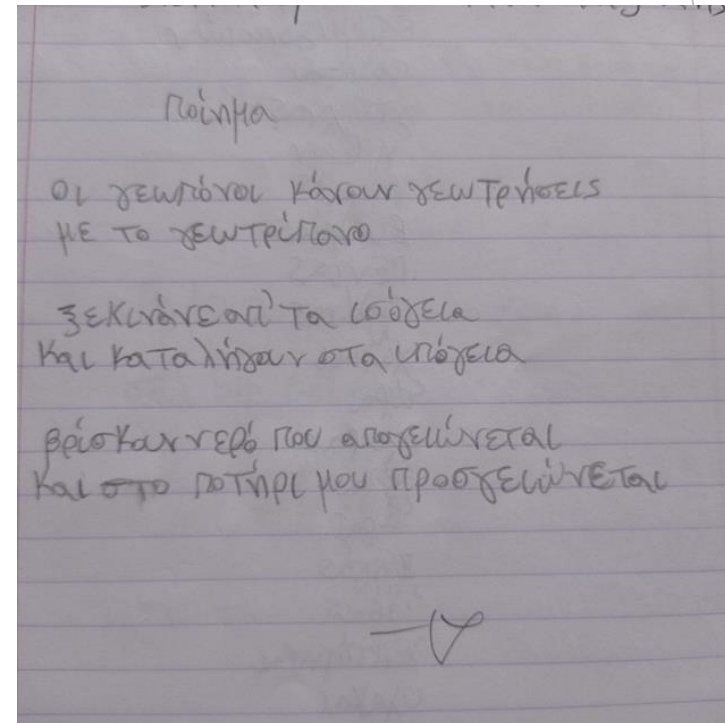 Ποίημα
Οι γεωπόνοι κάνουν γεωτρήσεις
με το γεωτρύπανο
ξεκινάνε απ' τα ισόγεια
και καταλήγουν στα υπόγεια
βρίσκουν νερό που απογειώνεται
και στο ποτήρι μου προσγειώνεται